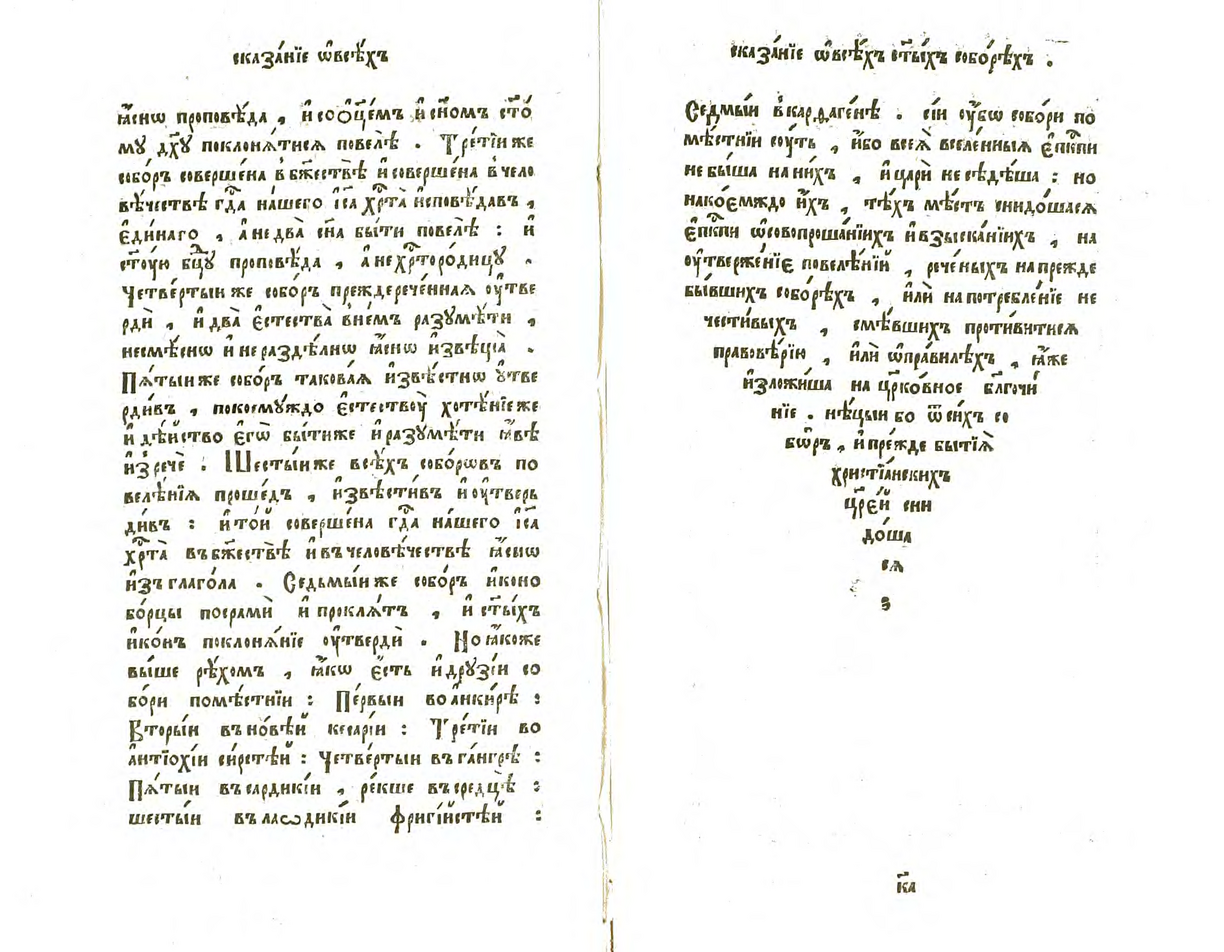 сказа́нїе ѡ҆все́хъ
ꙗ҆́снѡ проповѣ́да , и҆ сооц҃е́мъ и҆ сн҃омъ ст҃о
мꙋ дх҃ꙋ поклонѧ́тисѧ повелѣ̀ . Тре́тїи же
собо́ръ соверше́на в бж҃ествѣ̀ и҆ соверше́на в чело
вѣ́чествѣ гд҇а на́шего і҆са хр҇та̀ и҆сповѣ́давъ ,
є҆ди́наго , а҆ не два̀ сн҃а бы́ти повелѣ̀ : и҆
ст҃ꙋ́ю бц҃ꙋ проповѣ́да , а҆ не хр҇торо́дицꙋ .
Четве́ртыи же собо́ръ преждерече́ннаѧ оу҆тве
рдѝ , и҆ два̀ є҆стества̀ в не́мъ разꙋмѣ́ти ,
несмѣ́снѡ и҆ нераздѣ́лнѡ ꙗ҆́снѡ и҆звѣща̀ .
Пѧ́тыи же собо́ръ такова́ѧ и҆звѣ́стнѡ ᲂутве
рди́въ , покоемꙋ́ждо є҆стествоу̀ хотѣ́нїе же
и҆ дѣ́йство є҆гѡ̀ бы́ти же и҆ разꙋмѣ́ти ꙗ҆́вѣ
и҆зречѐ . Шесты́и же всѣ́хъ собо́рѡвъ по
велѣ́нїѧ проше́дъ , и҆звѣсти́въ и҆ оу҆тверь
ди́въ : и҆ то́й соверше́на гд҇а на́шего і҆са
хр҇та̀ въ бж҃ествѣ̀ и҆ въ человѣ́чествѣ ꙗ҆́снѡ
и҆зъглаго́ла . Седьмы́и же собо́ръ и҆коно
бо́рцы посрамѝ и҆ проклѧ́тъ , и҆ ст҃ы́хъ
и҆ко́нъ поклонѧ́нїе оу҆твердѝ . Но ꙗ҆́коже
вы́ше рѣ́хомъ , ꙗ҆́кѡ є҆́сть и҆ дрꙋзі́и со
бо́ри помѣ́стнїи : Пе́рвыи во а҆нки́рѣ :
Вторы́и въ но́вѣй кесарі́и : Тре́тїи во
а҆нтїохі́и си́рстѣй : Четве́ртыи въ га́нгрѣ :
Пѧ́тыи въ сардикі́и , ре́кше въ средцѣ̀ :
шесты́и въ лаѡдикі́и фригі́йстѣй :
сказа́нїе ѡ҆всѣ́хъ ст҃ы́хъ собо́рѣхъ .
Седмы́и в карѳаге́нѣ . сі́и оу҆́бѡ собо́ри по
мѣ́стнїи сꙋ́ть , и҆́бо всеѧ̀ вселе́нныѧ є҆пк҇пи
не бы́ша на ни́хъ , и҆ цари́ не сѣдѣ́ша : но
на ко́емждо и҆́хъ , тѣ́хъ мѣ́стъ снидо́шасѧ
є҆пк҇пи ѡ҆ совопроша́нїихъ и҆ взыска́нїихъ , на
оу҆твержє́нїе повелѣ́нїй , рече́ныхъ на прежде
бы́вшихъ собо́рѣхъ , и҆лѝ на потребле́нїе не
чести́выхъ , смѣ́вшихъ проти́витисѧ
правовѣ́рїю , и҆лѝ ѡ҆ пра́вилѣхъ , ꙗ҆́же
и҆зложи́ша на цр҃ко́вное бл҃гочи́
нїе . нѣ́цыи бо ѿ си́хъ со
бѡ́ръ , и҆ пре́жде бытїѧ̀
христїа́нскихъ
цр҃е́й сни
до́ша
сѧ
к҃а